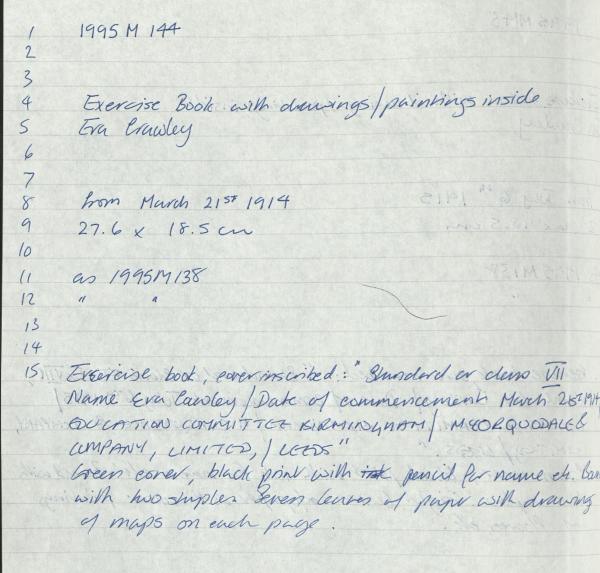 1 1995 M 144
2
3
4 Exercise Book with drawings/paintings inside
5 Eva Crawley
6
7
8 from March 21ST 1914
9 27.6 x 18.5 cm
10
11 as 1995M138
12 " "
13
14
15 Exercise book, cover inscribed: "Standard or class VII
Name Eva Cawley/Date of commencement March 21ST 1914
EDUCATION COMMITTEE BIRMINGHAM/ MCCORQUODALE &
COMPANY, LIMITED,/ LEEDS"
Green cover, black print with ink pencil for name etc.
with two staples. Seven leaves of paper with drawing
of maps on each page.